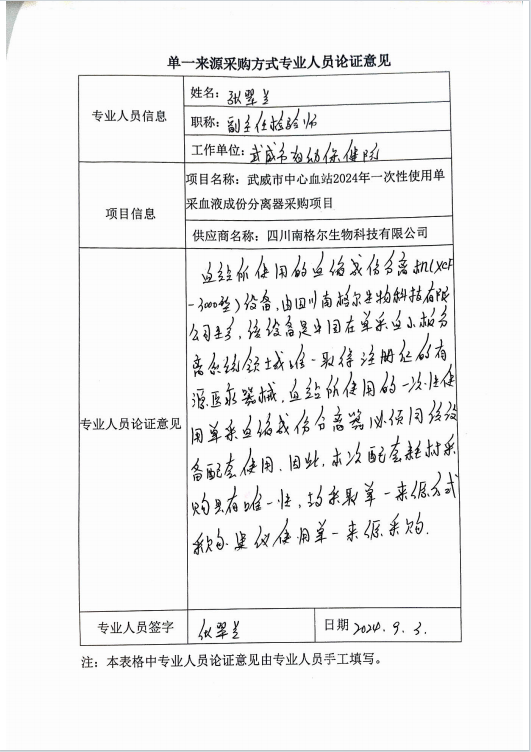 单一来源采购方式专业人员论证意见
专业人员信息
姓名：张翠兰
职称：副主任检验师
工作单位：武威市妇幼保健院
项目信息
项目名称：武威市中心血站2024年一次性使用单
采血液成份分离器采购项目
供应商名称：四川南格尔生物科技有限公司
专业人员论证意见
血站所使用的血液成份分离机（XCF
-3000型）设备，由四川南格尔生物科技有限
公司生产，该设备是中国在单采血小板分
离系统领域唯一取得注册证的有
源医疗器械，血站所使用的一次性使
用单采血液成份分离器必须同该设
备配套使用，因此，本次配套耗材采
购具有唯一性，故采取单一来源方式
采购。建议使用单一来源采购。
专业人员签字
张翠兰
日期 2024.9.3.
注：本表格中专业人员论证意见由专业人员手工填写。